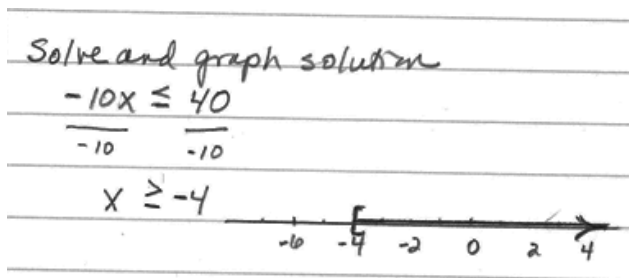 Solve and graph solution
-10x ≤ 40
-10 -10
x ≥ -4
-6 -4 -2 0 2 4